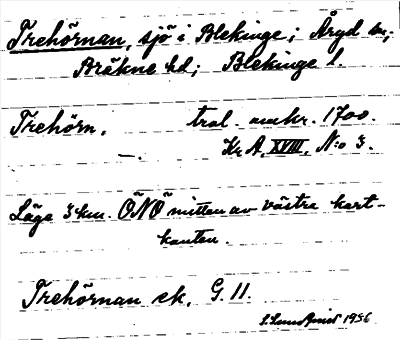 Trehörnan, sjö i Blekinge; Åryd sn;
Bräkne hd; Blekinge l.
Trehörn. trol. omkr. 1700.
Kr. A. XVIII. N:o 3.
Läge 3 km. ÖNÖ mitten av västra kart-
kanten.
Trehörnan ek. G. 11.
1956